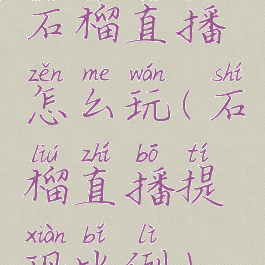 石榴直播
zěn me wán shí
怎么玩(石
liú zhí bō tí
榴直播提
xiàn bǐ lì
现比例)